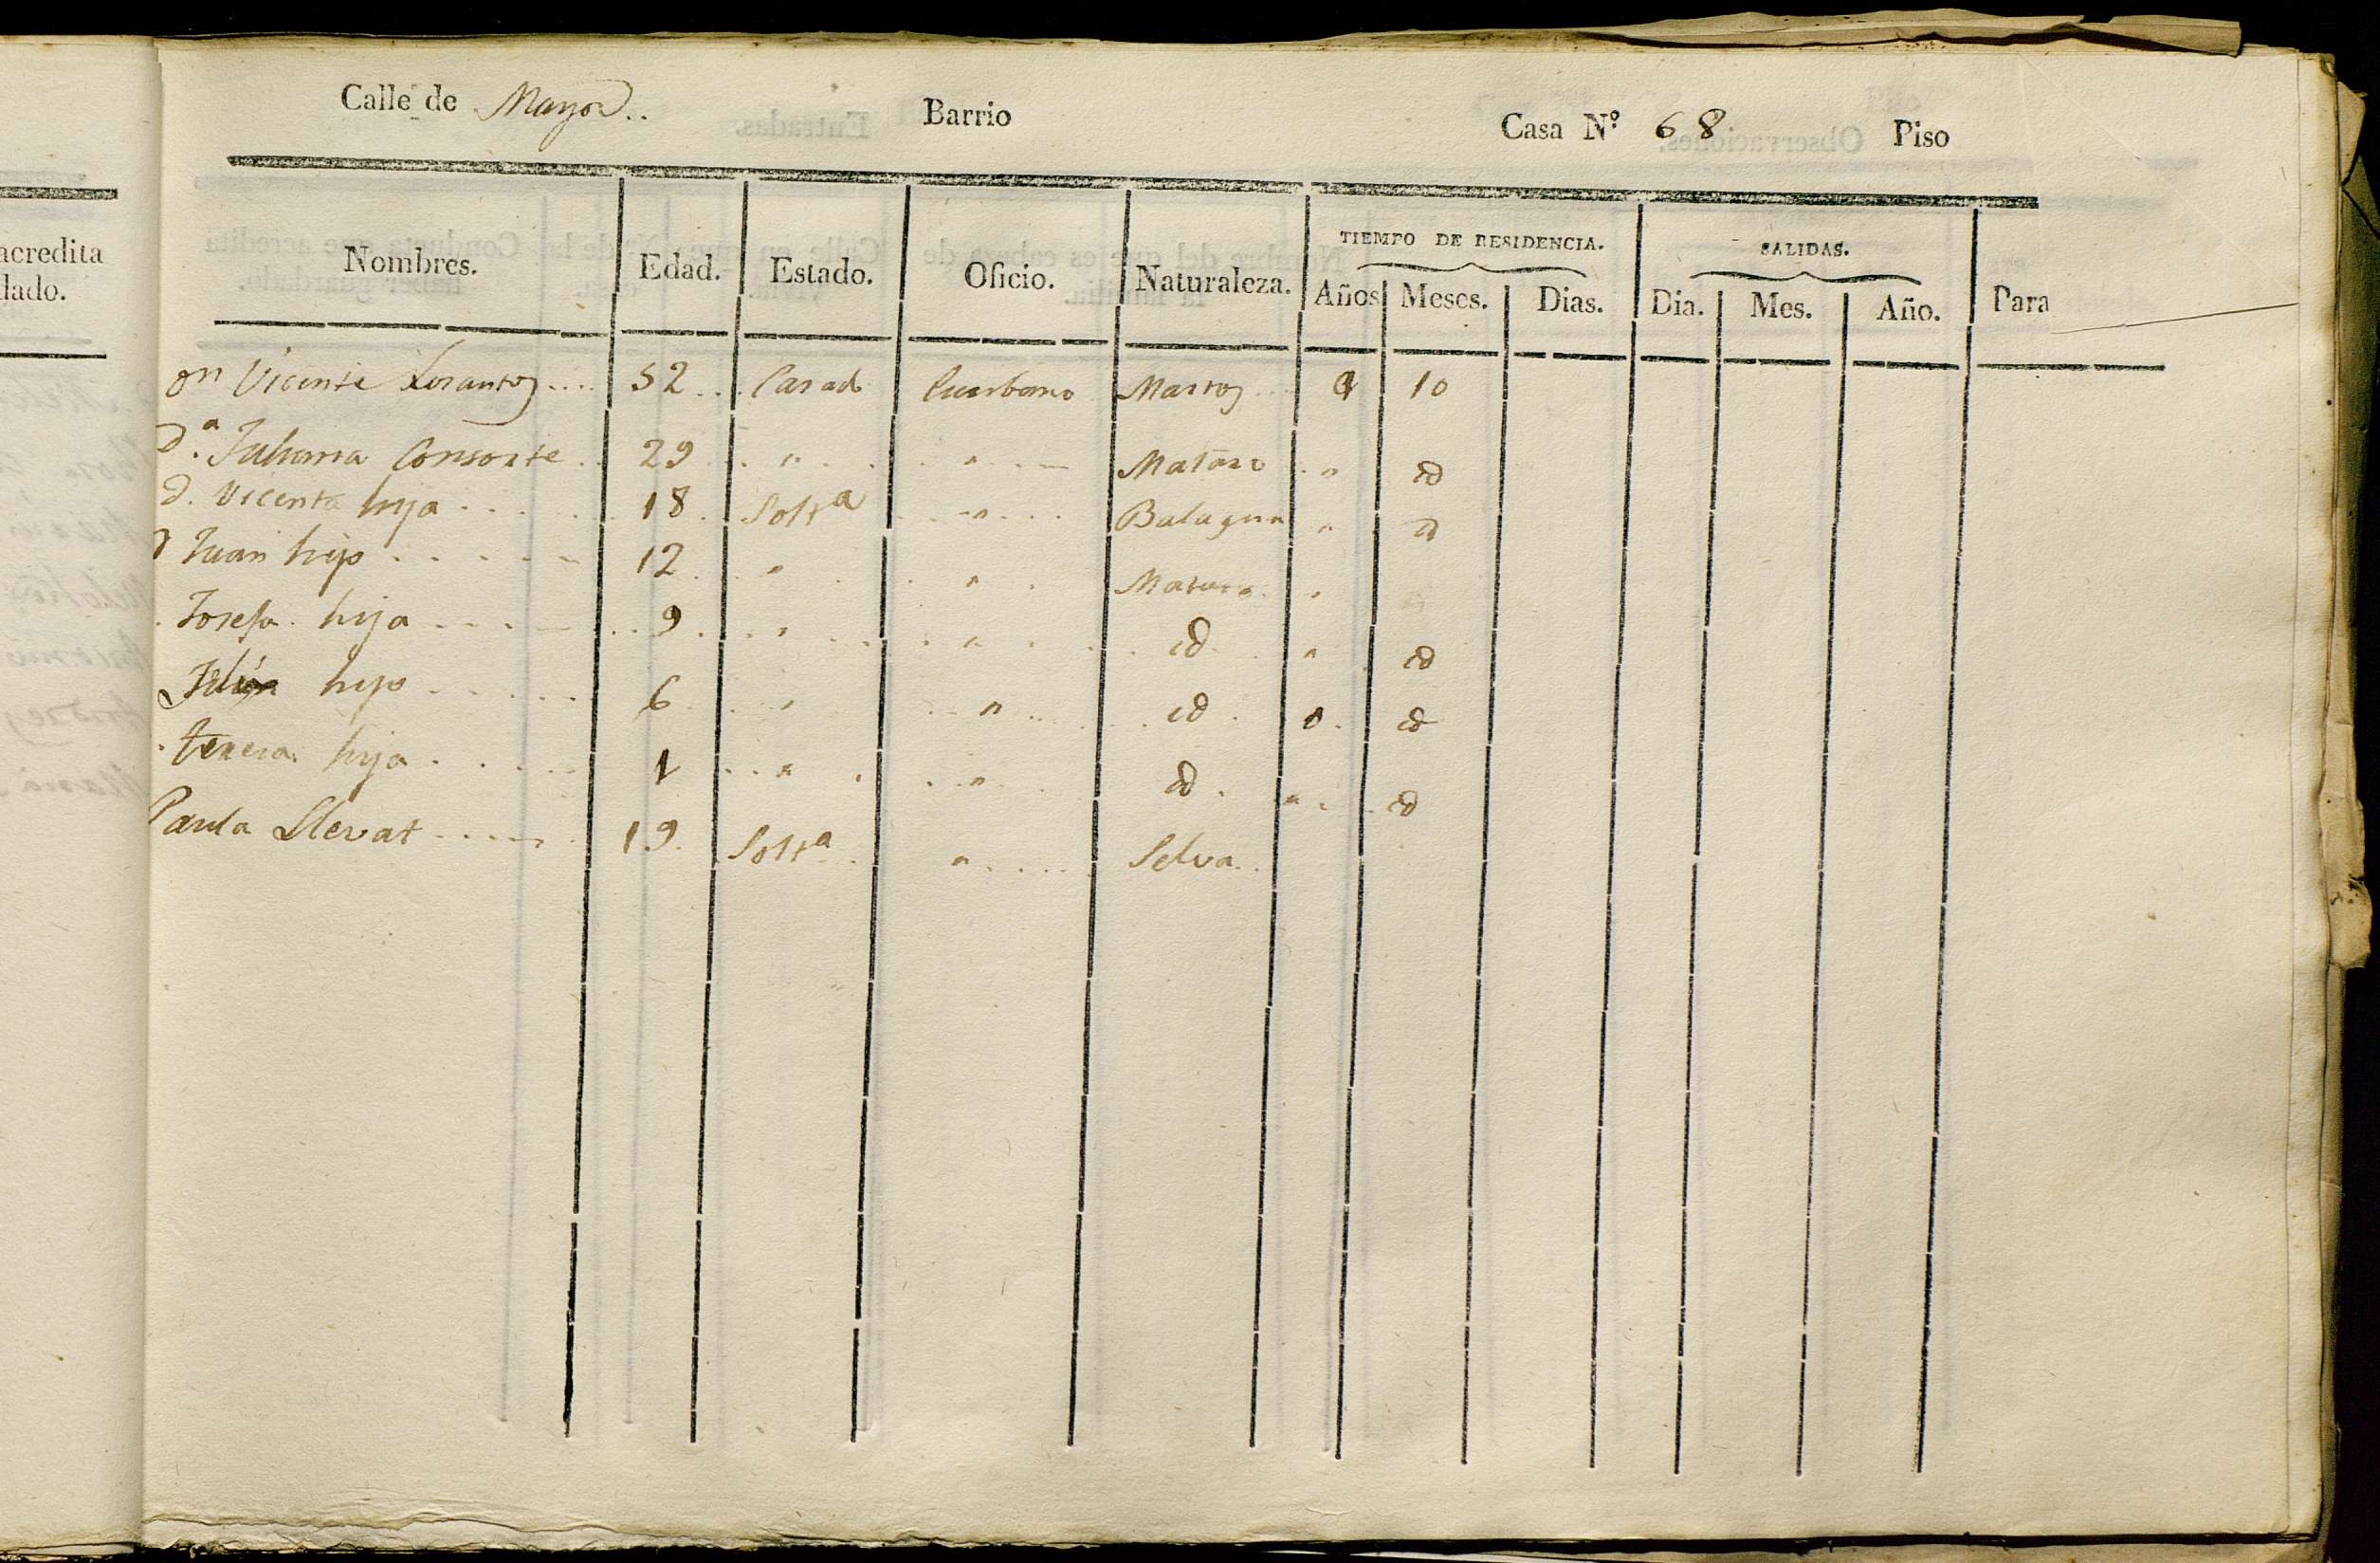 acredita
lado.
Calle de Mayor.. Barrio Casa Nº 68 Piso
TIEMPO DE RESIDENCIA. SALIDAS.
Nombres. Edad. Estado. Oficio. Naturaleza. Años Meses. Dias. Dia. Mes. Año. Para
on Vicente .... 52 .. Casado Martos ... 10
D.ª Juliana Consorte .. 29 .. " .. " .. Mataro .. " id
D. Vicenta hija .... 18 . Soltª .. " ... Balaguer " id
D Juan hijo ..... 12 . " . " . Mataro . " id
. Josefa hija .... 9 . " .. " .. id . " id
hijo ..... 6 . " .. " .. id . " . id
. teresa hija .... 1 .. " . " .. id . " . id
Paula Llevat .... 19 . Soltª . " .... Selva ..